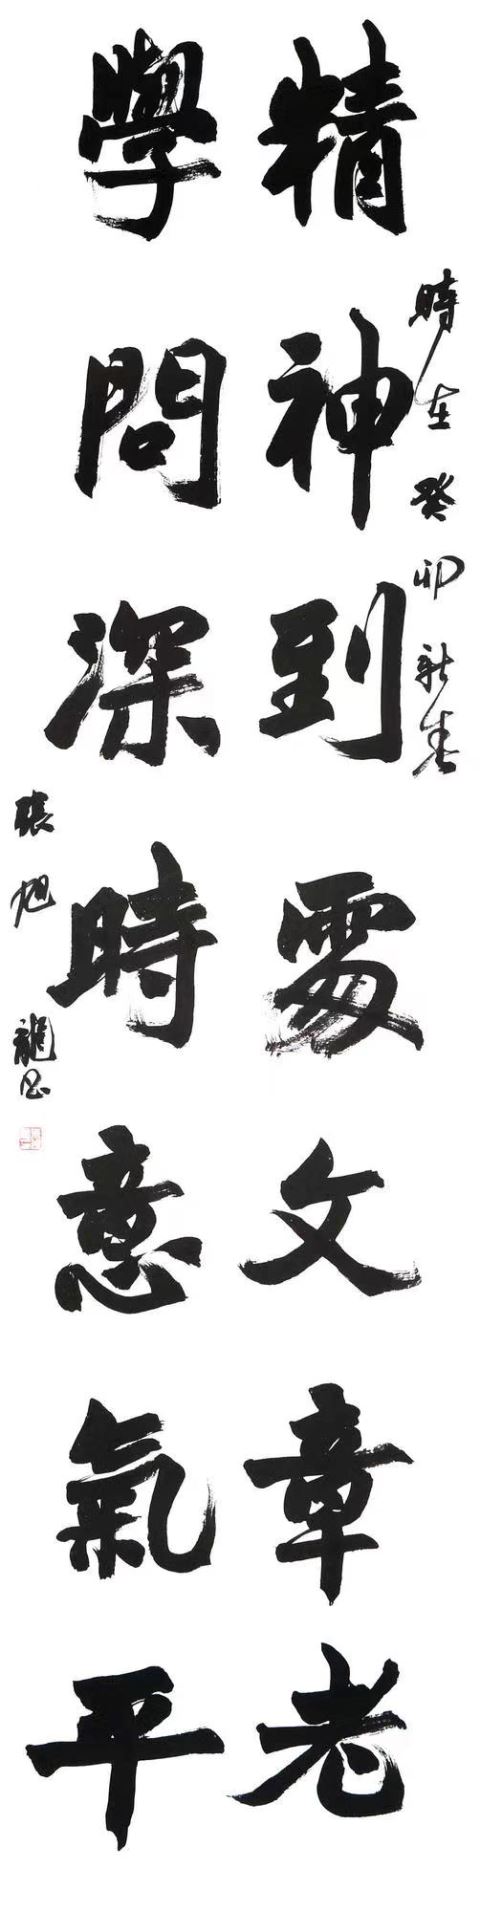 精神到處文章老
時在癸卯新春
學問深時意氣平
張旭龍書